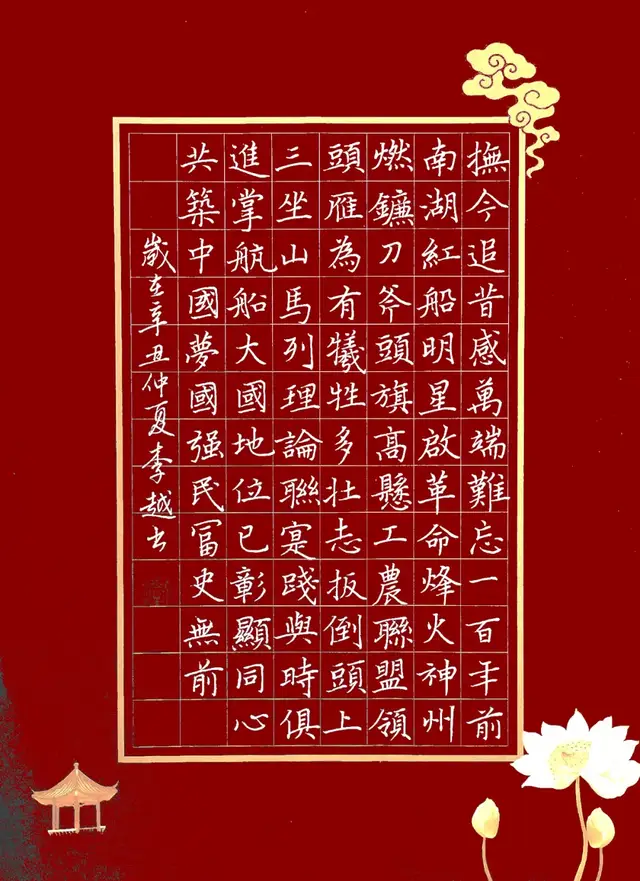 撫今追昔感萬端難忘一百年前
南湖紅船明星啟革命烽火神州
燃鐮刀斧頭旗髙懸工農聯盟領
頭雁為有犧牲多壯志扳倒頭上
三坐山馬列理論聯寔踐與時俱
進掌航船大國地位已彰顯同心
共築中國夢國强民冨史無前
歲在辛丑仲夏李越书